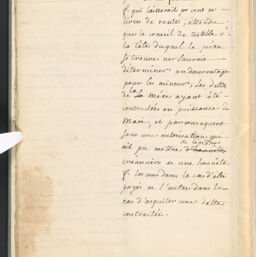 qui laisseroit pr cent m
livres de rente; attendu
que le conseil de tutelle à
la tête duquel le père
se trouve ne sauroit
déterminer un désavantage
pour les mineurs, les dettes
de la Mère ayant été
contractées en puissance de
Mari, et par conséquent
sans une autorisation qui
ait pu mettre
créanciers et une
les uns dans le cas d'être
payés et l'autre dans le
cas d'acquiter une dette
contractée.